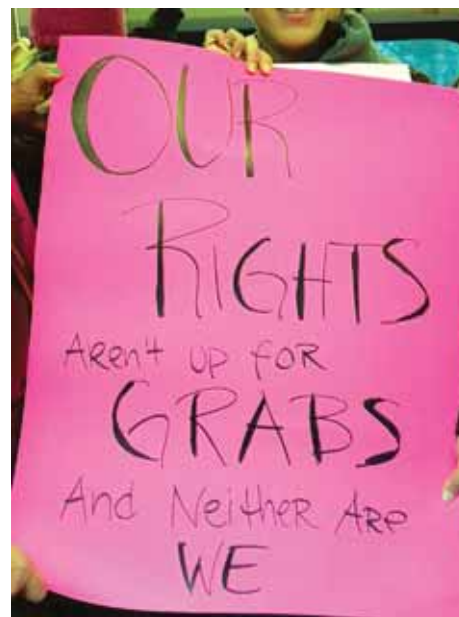 OUR
RIGHTS
AReN't UP foR
GRABS
And NeitHeR ARe
WE